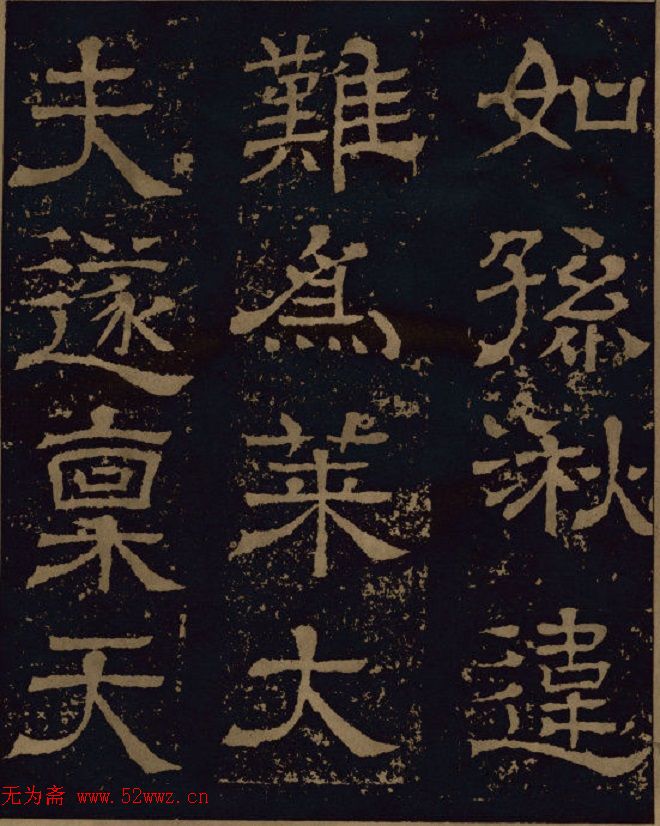 如孫湫違
難為萊大
夫遂稟天
无为斋 www.52wwz.cn